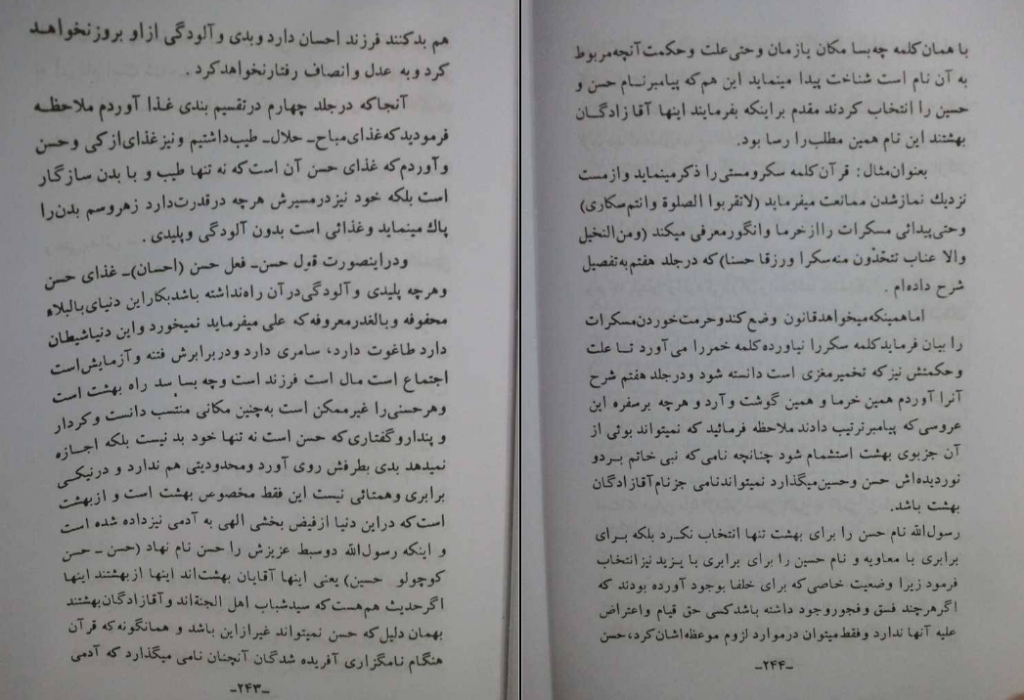 هم بدکنند فرزند احسان دارد وبدی وآلودگی ازاو بروزنخواهد
کرد وبه عدل وانصاف رفتارنخواهدکرد .
آنجاکه درجلد چهارم درتقسیم بندی غذا آوردم ملاحظه
فرمودیدکه غذای مباح ـ حلال ـ طیب داشتیم ونیزغذای ازکی وحسن
وآوردم که غذای حسن آن است که نه تنها طیب و با بدن سازگار
است بلکه خود نیزدرمسیرش هرچه درقدرت دارد زهروسم بدن را
پاك مینماید وغذائی است بدون آلودگی وپلیدی .
ودراینصورت قول حسن ـ فعل حسن (احسان) ـ غذای حسن
وهرچه پلیدی وآلودگی درآن راه نداشته باشدبکاراین دنیای بالبلاء
محفوفه وبالغدرمعروفه که علی میفرماید نمیخورد واین دنیاشیطان
دارد طاغوت دارد، سامری دارد ودربرابرش فتنه وآزمایش است
اجتماع است مال است فرزند است وچه بسا سد راه بهشت است
وهرحسنی را غیرممکن است به چنین مکانی منتسب دانست وکردار
و پندار وگفتاری که حسن است نه تنها خود بد نیست بلکه اجازه
نمیدهد بدی بطرفش روی آورد ومحدودیتی هم ندارد و درنیکی
برابری وهمتائی نیست این فقط مخصوص بهشت است و ازبهشت
است که دراین دنیا ازفیض بخشی الهی به آدمی نیزداده شده است
و اینکه رسول الله دوسبط عزیزش را حسن نام نهاد (حسن ـ حسن
کوچولو حسین) یعنی اینها آقایان بهشت اند اینها ازبهشتند اینها
اگرحدیث هم هست که سیدشباب اهل الجنه اند وآقازادگان بهشتند
بهمان دلیل که حسن نمیتواند غیرازاین باشد و همانگونه که قرآن
هنگام نامگزاری آفریده شدگان آنچنان نامی میگذارد که آدمی
ـ۲۴۳ـ
با همان کلمه چه بسا مکان یازمان وحتی علت وحکمت آنچه مربوط
به آن نام است شناخت پیدا مینماید این هم که پیامبرنام حسن و
حسین را انتخاب کردند مقدم براینکه بفرمایند اینها آقازادگان
بهشتند این نام همین مطلب را رسا بود.
بعنوان مثال: قرآن کلمه سکرومستی را ذکرمینماید وازمست
نزدیك نمازشدن ممانعت میفرماید (لاتقربوا الصلوة وانتم سکاری)
وحتی پیدائی مسکرات راازخرما وانگورمعرفی میکند (ومن النخیل
والا عناب تتخذون منه سکرا ورزقا حسنا) که درجلد هفتم به تفصیل
شرح داده ام .
اماهمینکه میخواهدقانون وضع کندوحرمت خوردن مسکرات
را بیان فرماید کلمه سکررا نیاورده کلمه خمررا می آورد تا علت
وحکمتش نیزکه تخمیرمغزی است دانسته شود ودرجلد هفتم شرح
آنرا آوردم همین خرما و همین گوشت وآرد و هرچه برسفره این
عروسی که پیامبرترتیب دادند ملاحظه فرمائید که نمیتواند بوئی از
آن جزبوی بهشت استشمام شود چنانچه نامی که نبی خاتم بردو
نوردیده اش حسن وحسین میگذارد نمیتواندنامی جزنام آقازادگان
بهشت باشد.
رسول الله نام حسن را برای بهشت تنها انتخاب نکرد بلکه برای
برابری با معاویه و نام حسین را برای برابری با یزید نیزانتخاب
فرمود زیرا وضعیت خاصی که برای خلفا بوجود آورده بودند که
اگرهرچند فسق وفجوروجود داشته باشدکسی حق قیام واعتراض
علیه آنها ندارد وفقط میتوان درموارد لزوم موعظه اشان کرد، حسن
ـ۲۴۴ـ